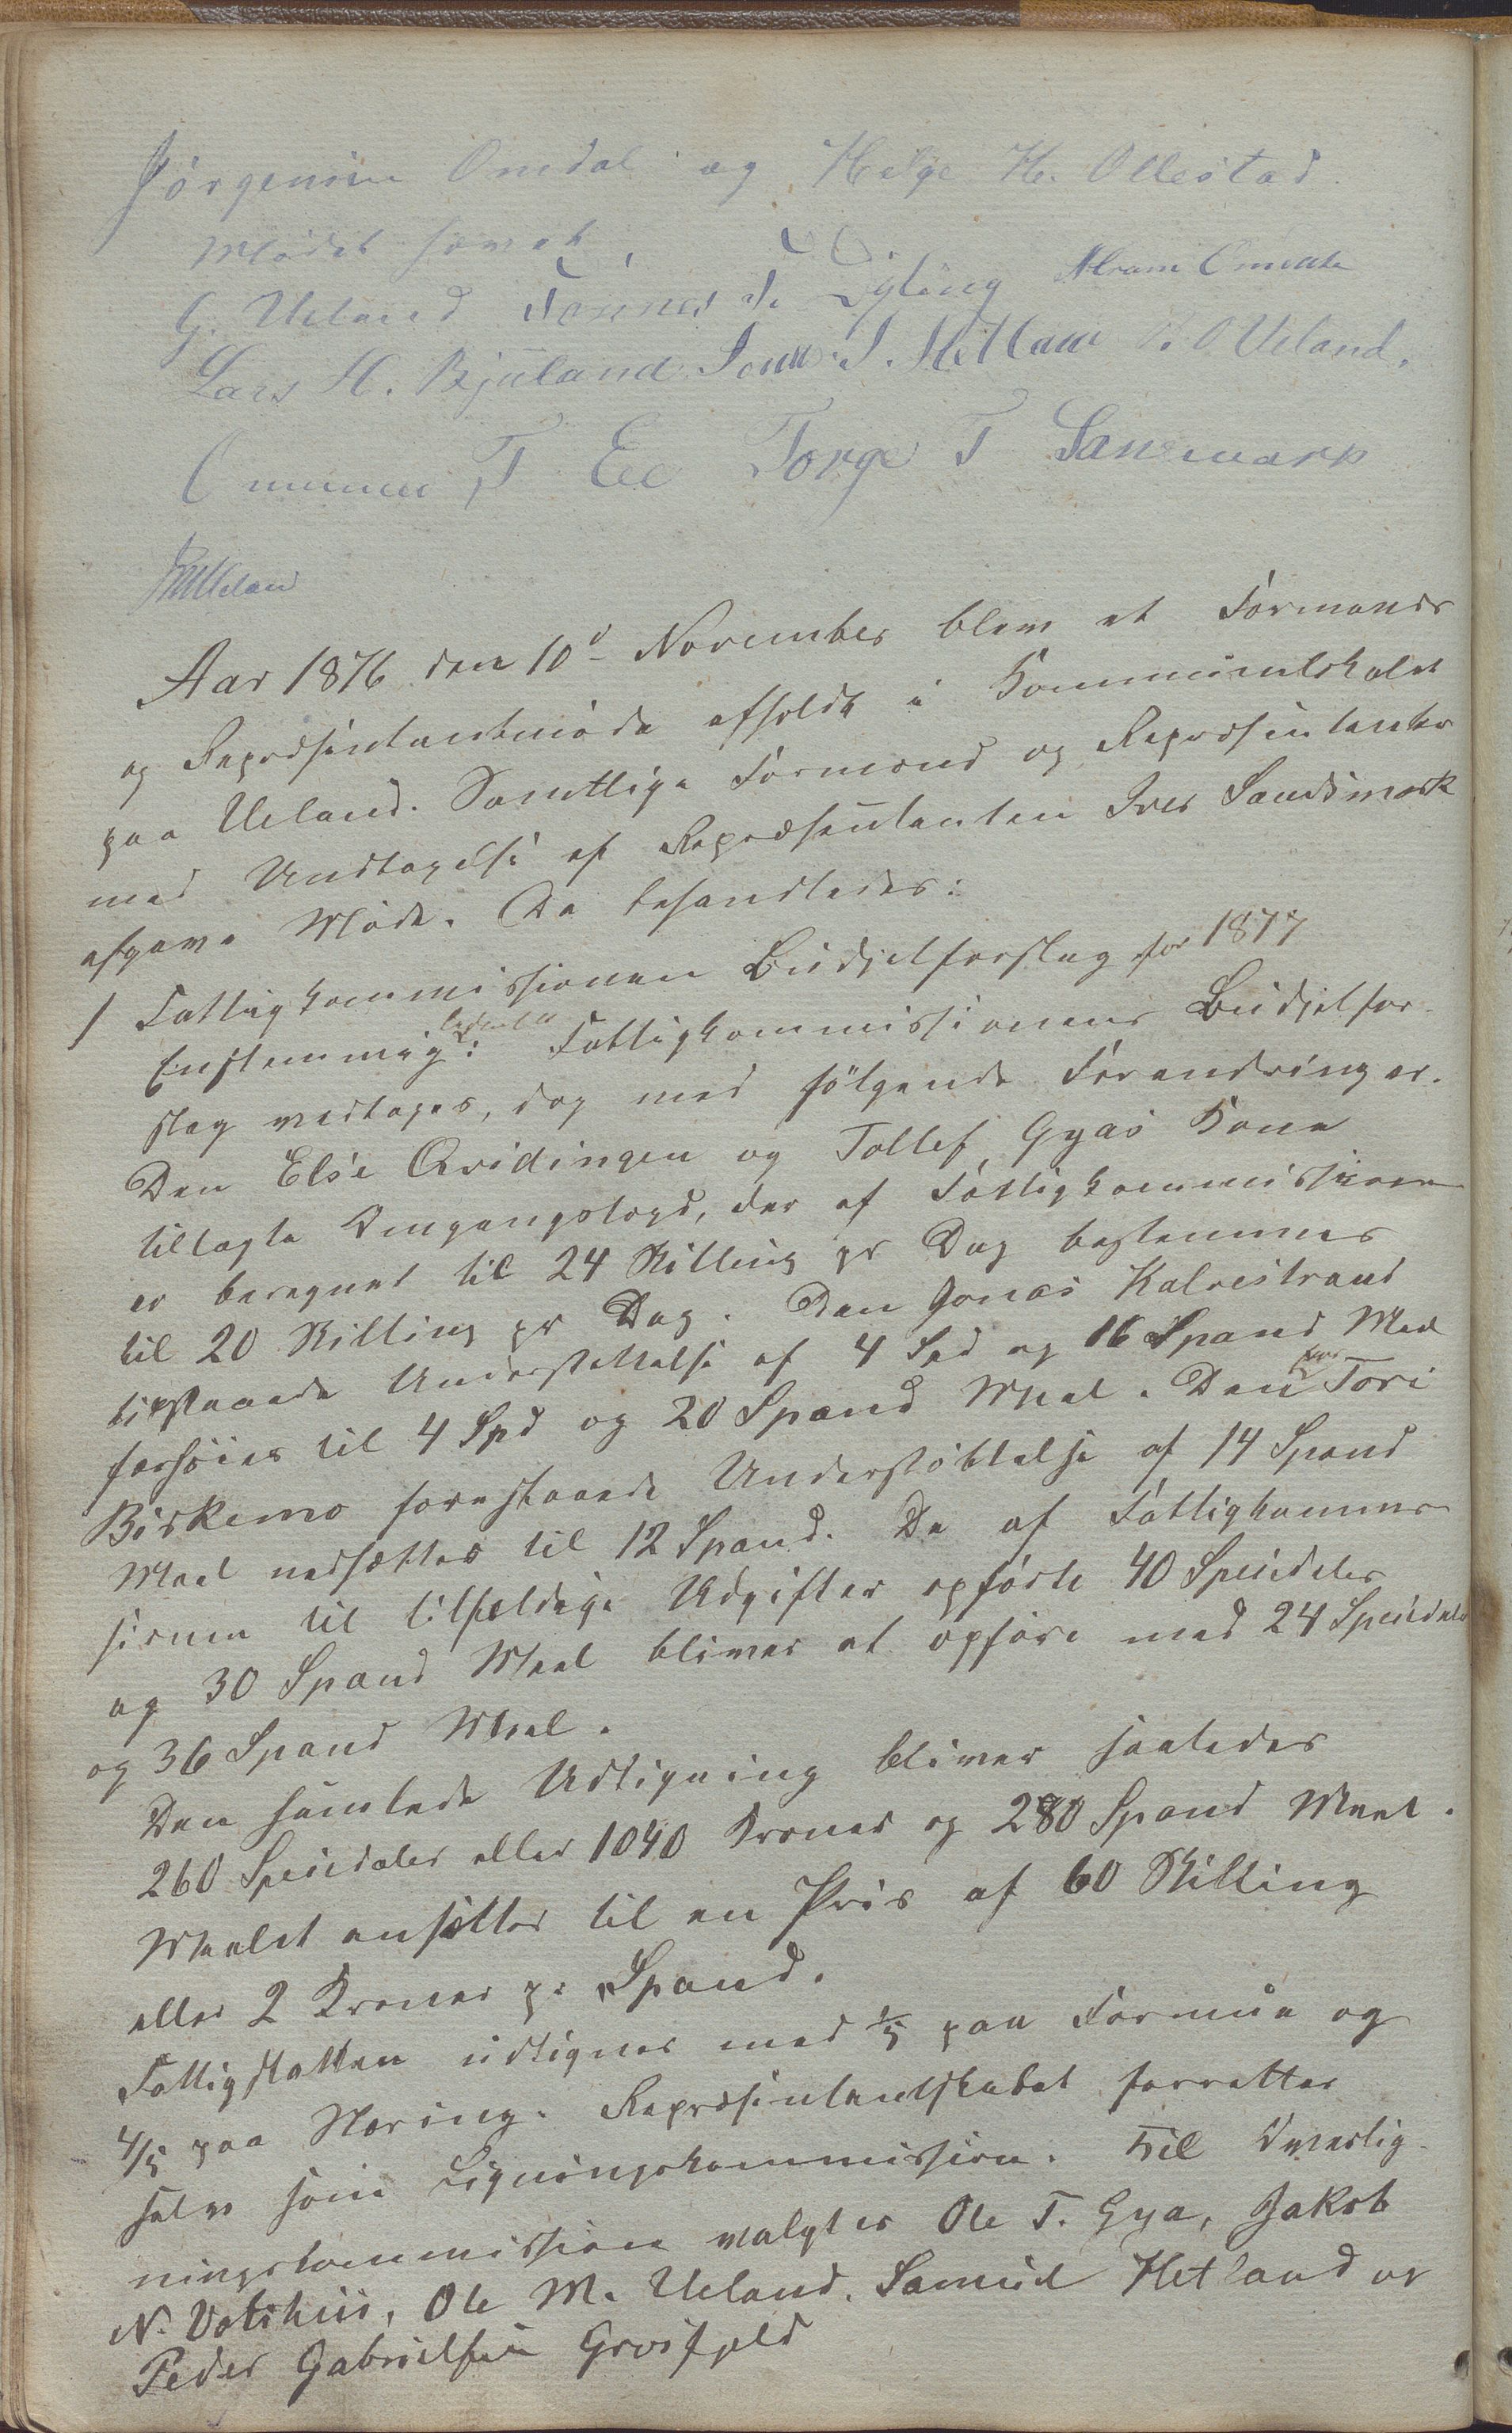 Jörgensen Omdal og Helge H. Ollestad
Mödet hævet
G. Ueland Tönnes T. Eyling Abram Omdal
Lars H. Bjuland Jonas S. Hetland O. O Ueland.
Ommun T Eee Torge T Sansmark
Ueland
Aar 1876 den 10d November blev et Formands
og Repræsentantmöde afholdt i Kommunelokalet
paa Ueland. Samtlige Formænd og Repræsentanter
med Undtagelse af Repræsentanten Iver Sandsmark
afgave Möde. Da behandledes:
1 Fattigkommissionens Budjetforslag for 1877
Enstemmig besluttet: Fattigkommissionens Budjetfor-
slag vedtages, dog med fölgende Forandringer.
Den Else Qvidingen og Tollef Gyas Kone
tillagte Omgangslægd, der af Fattigkommissionen
er beregnet til 24 Skilling pr Dag bestemmes
til 20 Skilling pr Dag. Den Jonas Kalvestrand
tilstaaede Understöttelse af 4 Spd og 16 Spand Mel
forhöies til 4 Spd og 20 Spand Meel. Den for Tori
Birkemo foreslaaede Understöttelse af 14 Spand
Meel nedsættes til 12 Spand. De af Fattigkommis-
sionen til tilfældige Udgifter opförte 40 Speciedaler
og 30 Spand Meel bliver at opföre med 24 Speciedaler
og 36 Spand Meel.
Den samlede Udligning bliver saaledes
260 Speciedaler eller 1040 Kroner og 280 Spand Meel.
Meelet ansættes til en Pris af 60 Skilling
eller 2 Kroner pr Spand.
Fattigskatten udlignes med 1/5 paa Formue og
4/5 paa Næring. Repræsentantskabet forretter
selv som Ligningskommission. Til Overlig-
ningskommission valgtes Ole T. Gya, Jakob
N. Vatshus, Ole M. Ueland, Samuel Hetland og
Peder Gabrielsen Grosfjeld